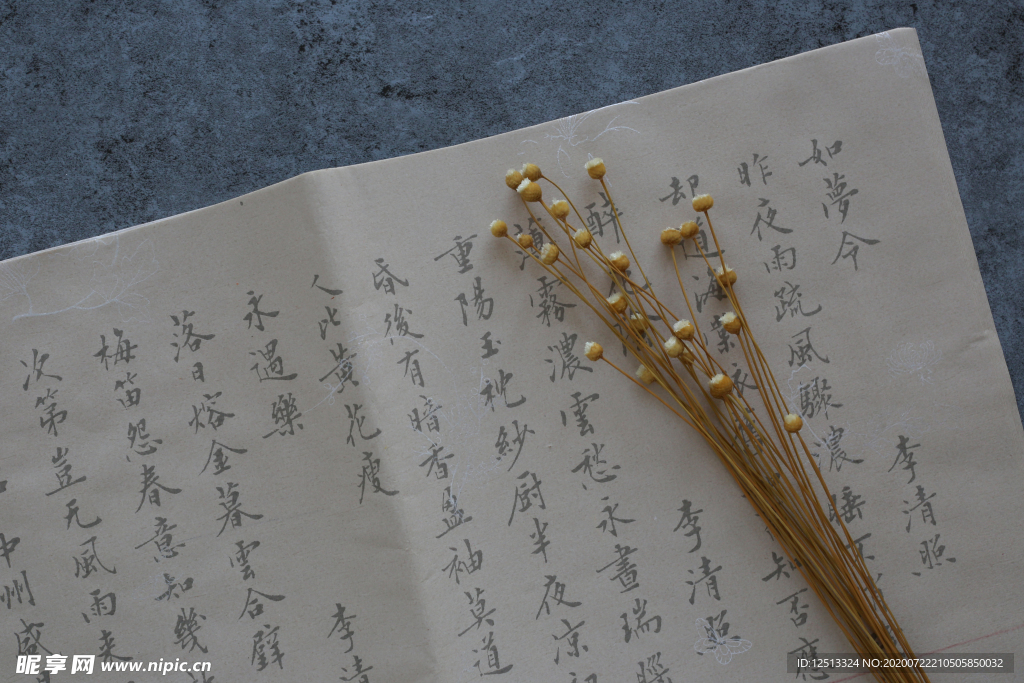 如夢令
李清照
昨夜雨疏風驟濃睡不
却道海棠依
知否應
醉花陰
李清照
薄霧濃雲愁永晝瑞腦
重陽玉枕紗厨半夜凉初
昏後有暗香盈袖莫道
人比黃花瘦
永遇樂
李清
落日熔金暮雲合璧
梅笛怨春意知幾
次第豈无風雨来
中州盛
昵享网 www.nipic.cn
ID:12513324 NO:20200722210505850032